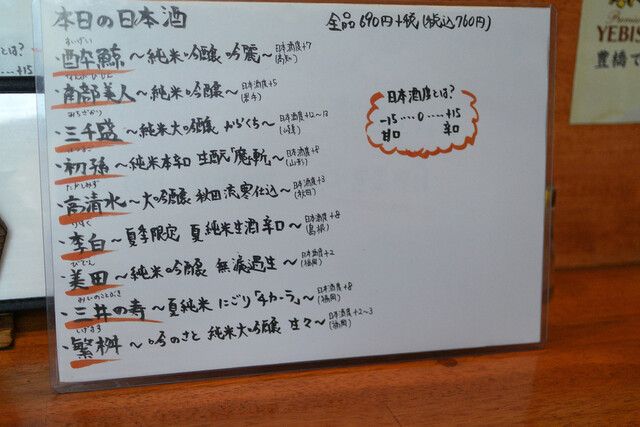 本日の日本酒 全品690円+税(税込760円)
すいげい
・酔鯨 〜純米吟醸 吟麗〜 日本酒度+7 (高知)
・南部美人 〜純米吟醸〜 日本酒度+5 (岩手)
みちさかり
・三千盛 〜純米大吟醸 からくち〜 日本酒度+12〜13
・初孫 〜純米本辛口 生酛「魔斬」〜 日本酒度+8 (山形)
たかしみず
・高清水 〜大吟醸 秋田流寒仕込〜 日本酒度+3 (秋田)
りはく
・李白 〜夏季限定 夏純米生酒 辛口〜 日本酒度+8 (島根)
びでん
・美田 〜純米吟醸 無濾過生〜 日本酒度+2 (福岡)
みいのことぶき
・三井の寿 〜夏純米 にごり「チカーラ」〜 日本酒度+8 (福岡)
しげます
・繁桝 〜吟のさと 純米大吟醸 甘々〜 日本酒度+2〜3 (福岡)
日本酒度とは?
-15‥‥0‥‥+15
甘口 辛口
とは?
+15
YEBIS
豊橋で